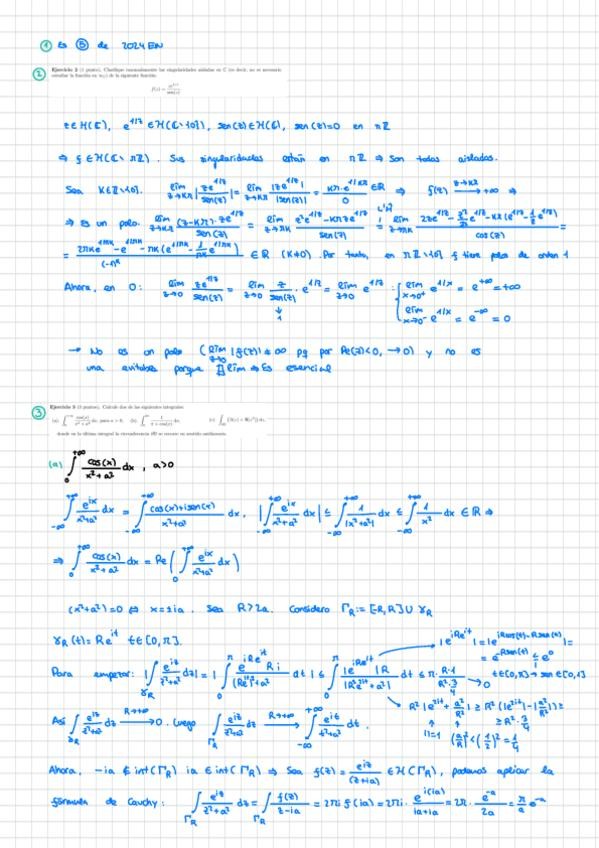 ① Es ⑤ de 2024 EN
② Ejercicio 2 (1 punto). Clasifique razonadamente las singularidades aisladas en ℂ (es decir, no es necesario
estudiar la función en ∞) de la siguiente función:
f(z) = ze^{1/z}/sen(z)
z∈H(ℂ), e^{1/z}∈H(ℂ\{0}), sen(z)∈H(ℂ), sen(z)=0 en πℤ
⇒ f∈H(ℂ\πℤ). Sus singularidades están en πℤ ⇒ Son todas aisladas.
Sea K∈ℤ\{0}. lím_{z→Kπ} |ze^{1/z}/sen(z)| = lím_{z→Kπ} |ze^{1/z}|/|sen(z)| = Kπ·e^{1/Kπ}/0 ∈ℝ ⇒ f(z) →^{z→Kπ} +∞ ⇒
⇒ Es un polo. lím_{z→Kπ} (z-Kπ)·ze^{1/z}/sen(z) = lím_{z→Kπ} z²e^{1/z}-Kπze^{1/z}/sen(z) = lím_{z→πK} 2ze^{1/z} - z²/z² e^{1/z} - Kπ(e^{1/z} - 1/z e^{1/z})/cos(z) =
= 2πKe^{1/πK} - e^{1/πK} - πK(e^{1/πK} - 1/πK e^{1/πK})/(-1)^K ∈ℝ (K≠0). Por tanto, en πℤ\{0} f tiene polos de orden 1
Ahora, en 0: lím_{z→0} ze^{1/z}/sen(z) = lím_{z→0} z/sen(z) · e^{1/z} = lím_{z→0} e^{1/z} : { lím_{x→0⁺} e^{1/x} = e^{+∞} = +∞
↓ 1
lím_{x→0⁻} e^{1/x} = e^{-∞} = 0
→ No es un polo (lím_{z→0} |f(z)| ≠ ∞ pq por Re(z)<0, →0) y no es
una evitable porque ∄ lím ⇒ Es esencial
③ Ejercicio 3 (3 puntos). Calcule dos de las siguientes integrales:
donde en la última integral la circunferencia se recorre en sentido antihorario.
(a) ∫_0^{+∞} cos(x)/x²+a² dx, a>0
∫_{-∞}^{+∞} e^{ix}/x²+a² dx = ∫_{-∞}^{+∞} cos(x)+isen(x)/x²+a² dx. |∫_{-∞}^{+∞} e^{ix}/x²+a² dx| ≤ ∫_{-∞}^{+∞} 1/|x²+a²| ≤ ∫_{-∞}^{+∞} 1/x² dx ∈ℝ ⇒
⇒ ∫_0^{+∞} cos(x)/x²+a² dx = Re(∫_0^{+∞} e^{ix}/x²+a² dx)
(x²+a²)=0 ⇔ x=±ia. Sea R>2a. Considero Γ_R := [-R,R]∪γ_R
γ_R(t)=Re^{it} t∈[0,π].
|e^{iRe^{it}}| = |e^{iRcos(t)-Rsen(t)}| =
= e^{-Rsen(t)} ≤ e⁰
t∈[0,π]→sen∈[0,1]
Para empezar: |∫_{γ_R} e^{iz}/z²+a² dz| = |∫_0^π e^{iRe^{it}} Ri/(Re^{it})²+a² dt| ≤ ∫_0^π |e^{iRe^{it}}|R/|R²e^{2it}+a²| dt ≤ π·R·1/R²·3/4 → 0
R²|e^{2it}+a²/R²| ≥ R²(|e^{2it}|-|a²/R²|) ≥
≥ R²·3/4
||=1 (a/R)²<(1/2)²=1/4
Así ∫_{γ_R} e^{iz}/z²+a² dz →^{R→+∞} 0. Luego ∫_{Γ_R} e^{iz}/z²+a² dz →^{R→+∞} ∫_{-∞}^{+∞} e^{it}/t²+a² dt.
Ahora, -ia∉int(Γ_R) ia∈int(Γ_R) ⇒ Sea f(z) = e^{iz}/(z+ia) ∈H(Γ_R), podemos aplicar la
fórmula de Cauchy: ∫_{Γ_R} e^{iz}/z²+a² dz = ∫_{Γ_R} f(z)/z-ia = 2πi f(ia) = 2πi · e^{i(ia)}/ia+ia = 2π · e^{-a}/2a = π/a e^{-a}